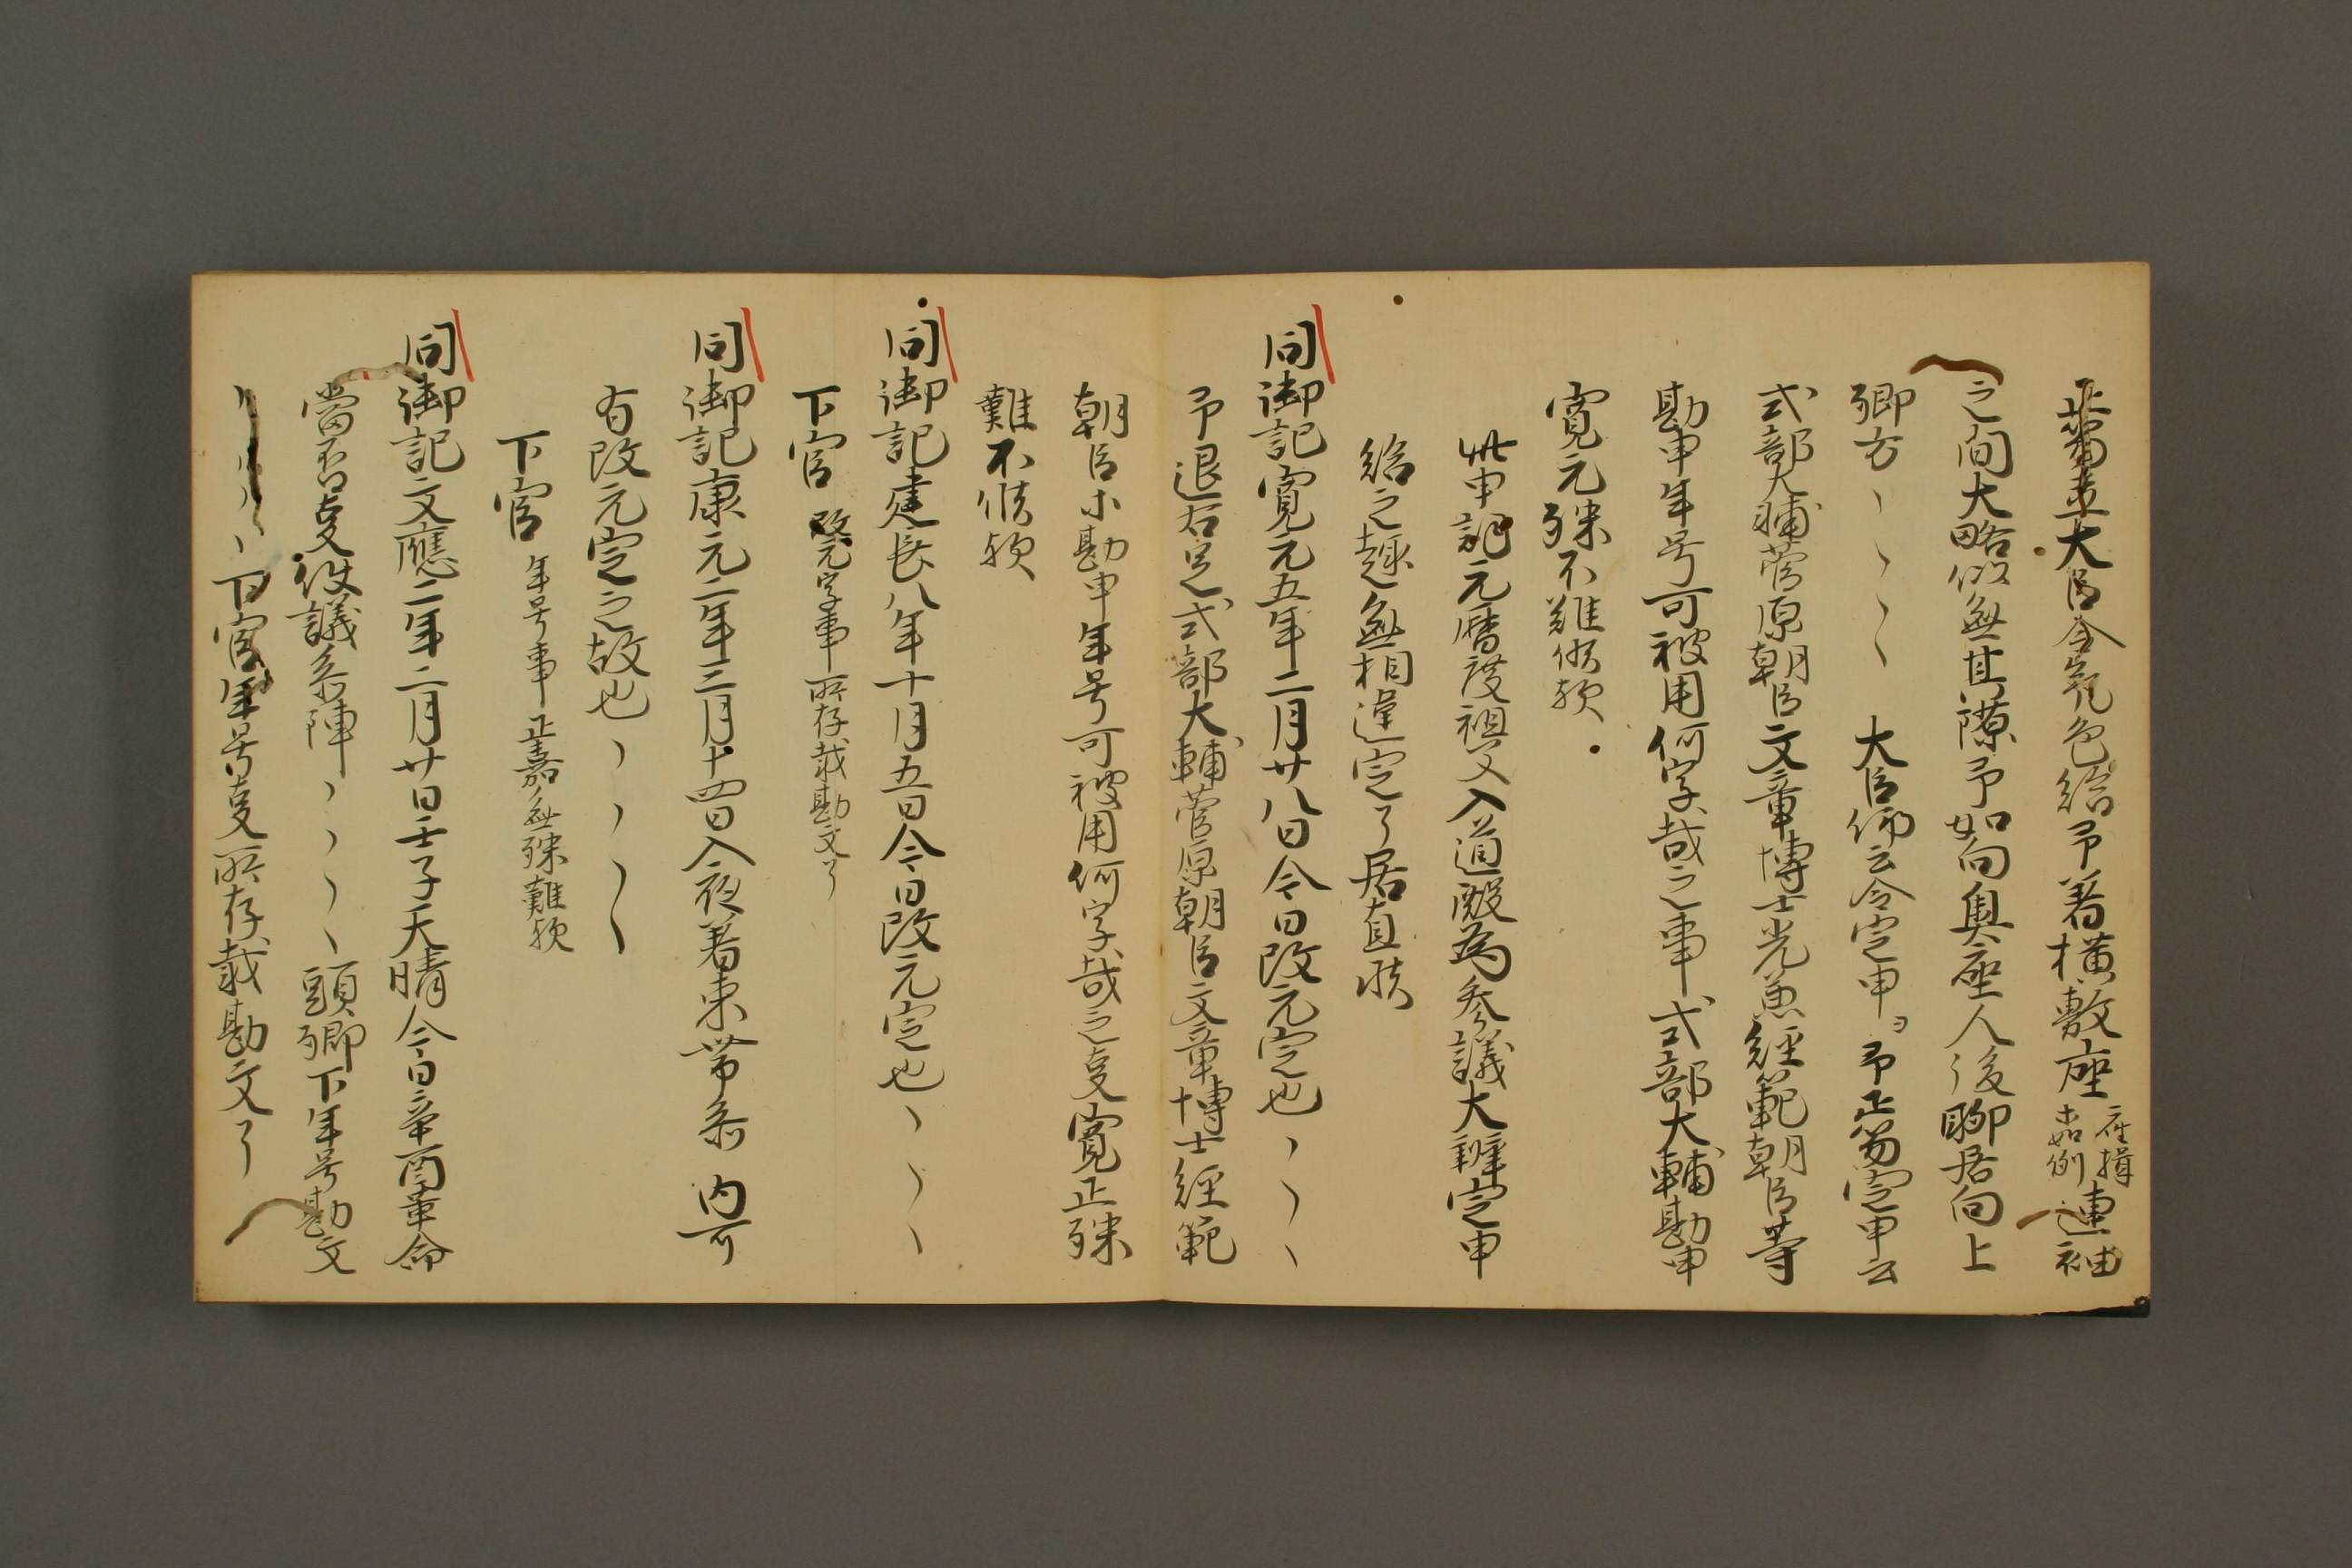 正笏直大臣令氣色給予着横敷座 座揖如例 連袖
之間大略似無其隙予如向奥座人後聊居向上
卿方〻〻〻〻 大臣仰云令定申ヨ予正笏定申云
式部大輔菅原朝臣文章博士光兼経範朝臣等
勘申年号可被用何字哉之事式部大輔勘申
寛元殊不難候歟
此申詞元暦度祖父入道殿為参議大辨定申
給之趣無相違定了居直候
同御記寛元五年二月廿八日今日改元定也〻〻〻〻
予退右足式部大輔菅原朝臣文章博士経範
朝臣ホ勘申年号可被用何字哉之事寛正殊
難不候歟
同御記建長八年十月五日今日改元定也〻〻〻〻
下官 改元字事所存載勘文了
同御記康元二年三月十四日入夜着束帯参内可
有改元定之故也〻〻〻〻
下官 年号事正嘉無殊難歟
同御記文應二年二月廿日壬子天晴今日辛酉革命
當否事仗議参陣〻〻〻〻頭卿下年号勘文
〻〻〻〻〻下官年号事所存載勘文了